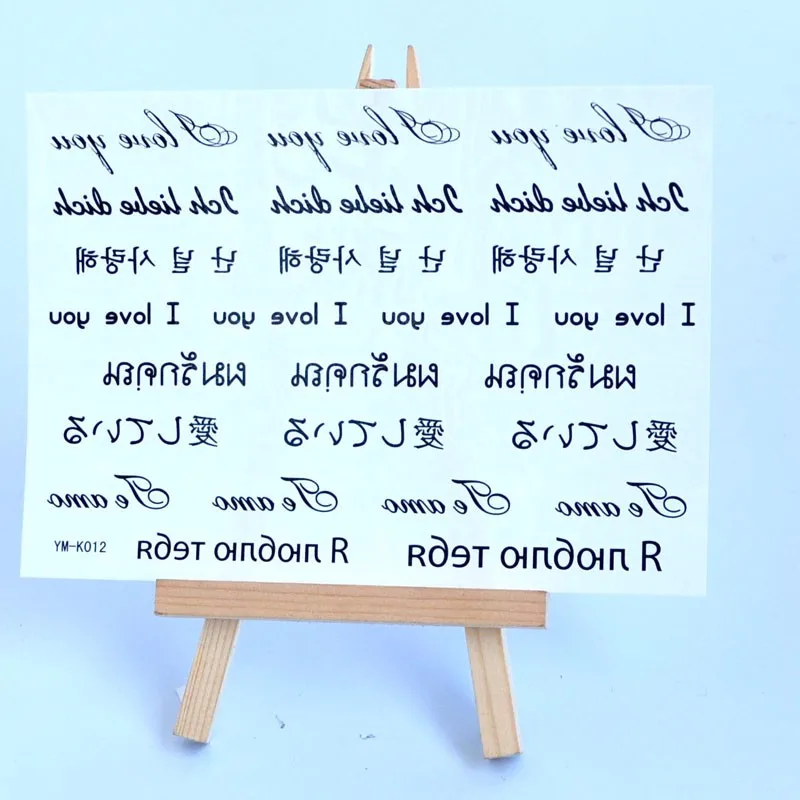 I love you I love you I love you
Ich liebe dich Ich liebe dich Ich liebe dich
난 널 사랑해 난 널 사랑해 난 널 사랑해
I love you I love you I love you I love you
ผมรักคุณ ผมรักคุณ ผมรักคุณ
愛している 愛している 愛している
Te amo Te amo Te amo Te amo
YM-K012 Я люблю тебя Я люблю тебя